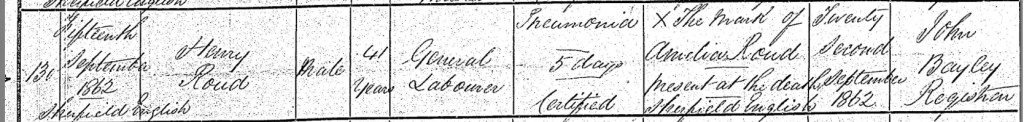 130
Fifteenth
September
1862
Sherfield English
Henry
Roud
Male
41
Years
General
Labourer
Pneumonia
5 days
Certified
X The Mark of
Amelia Roud
present at the death
Sherfield English
Twenty
Second
September
1862
John
Bayley
Registrar